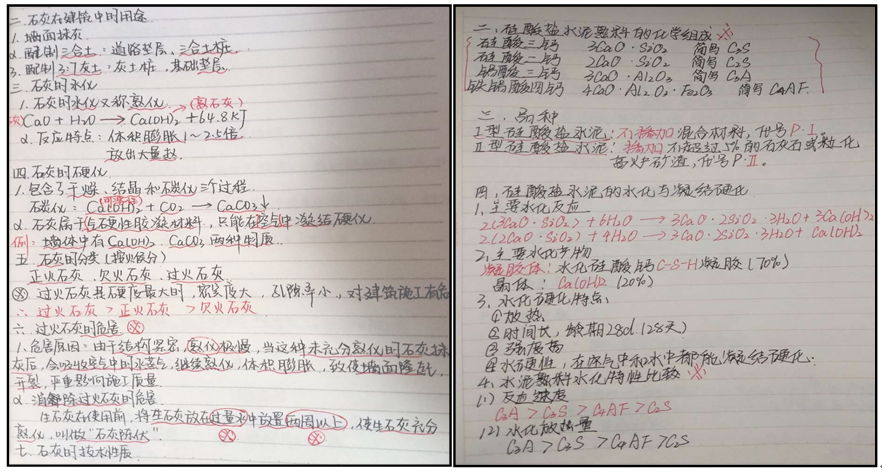 二.石灰在建筑中的用途
1.墙面抹灰
2.配制三合土:道路垫层、三合土桩
3.配制3:7灰土:灰土桩、基础垫层
三.石灰的水化
1.石灰的水化又称熟化 (熟石灰)
CaO + H2O → Ca(OH)2 + 64.8KJ
2.反应特点:体积膨胀1~2.5倍
放出大量热
四.石灰的硬化
1.包含了干燥、结晶和碳化三个过程
碳化:Ca(OH)2 + CO2 → CaCO3↓
2.石灰属于气硬性胶凝材料,只能在空气中凝结硬化
例:墙体中有Ca(OH)2、CaCO3两种物质
五.石灰的分类(按火候分)
正火石灰、欠火石灰、过火石灰
※ 过火石灰其硬度最大时,密实度大,孔隙率小,对建筑施工有危
∴ 过火石灰 > 正火石灰 > 欠火石灰
六.过火石灰的危害 ※
1.危害原因:由于结构紧密,熟化极慢,当这种未充分熟化的石灰抹
灰后,会吸收空气中的水蒸气,继续熟化,体积膨胀,致使墙面隆起、
开裂,严重影响施工质量
2.消解除过火石灰的危害
生石灰在使用前,将生石灰放在过量水中放置两周以上,使生石灰充分
熟化,叫做"石灰陈伏"
七.石灰的技术性质
二、硅酸盐水泥熟料的化学组成 ※
硅酸三钙 3CaO·SiO2 简写 C3S
硅酸二钙 2CaO·SiO2 简写 C2S
铝酸三钙 3CaO·Al2O3 简写 C3A
铁铝酸四钙 4CaO·Al2O3·Fe2O3 简写 C4AF
三.品种
I型硅酸盐水泥:不掺加混合材料,代号P·I
II型硅酸盐水泥:掺加不超过5%的石灰石或粒化
高炉矿渣,代号P·II.
四.硅酸盐水泥的水化与凝结硬化
1.主要水化反应
2(3CaO·SiO2) + 6H2O → 3CaO·2SiO2·3H2O + 3Ca(OH)2
2(2CaO·SiO2) + 4H2O → 3CaO·2SiO2·3H2O + Ca(OH)2
2.主要水化产物
凝胶体:水化硅酸钙C-S-H凝胶(70%)
晶体:Ca(OH)2 (20%)
3.水化硬化特点:
①放热
②时间长,龄期28d(28天)
③强度高
④水硬性,在空气中和水中都能凝结硬化.
4.水泥熟料水化特性比较 ※
(1)反应速度
C3A > C3S > C4AF > C2S
(2)水化放热量
C3A > C3S > C4AF > C2S